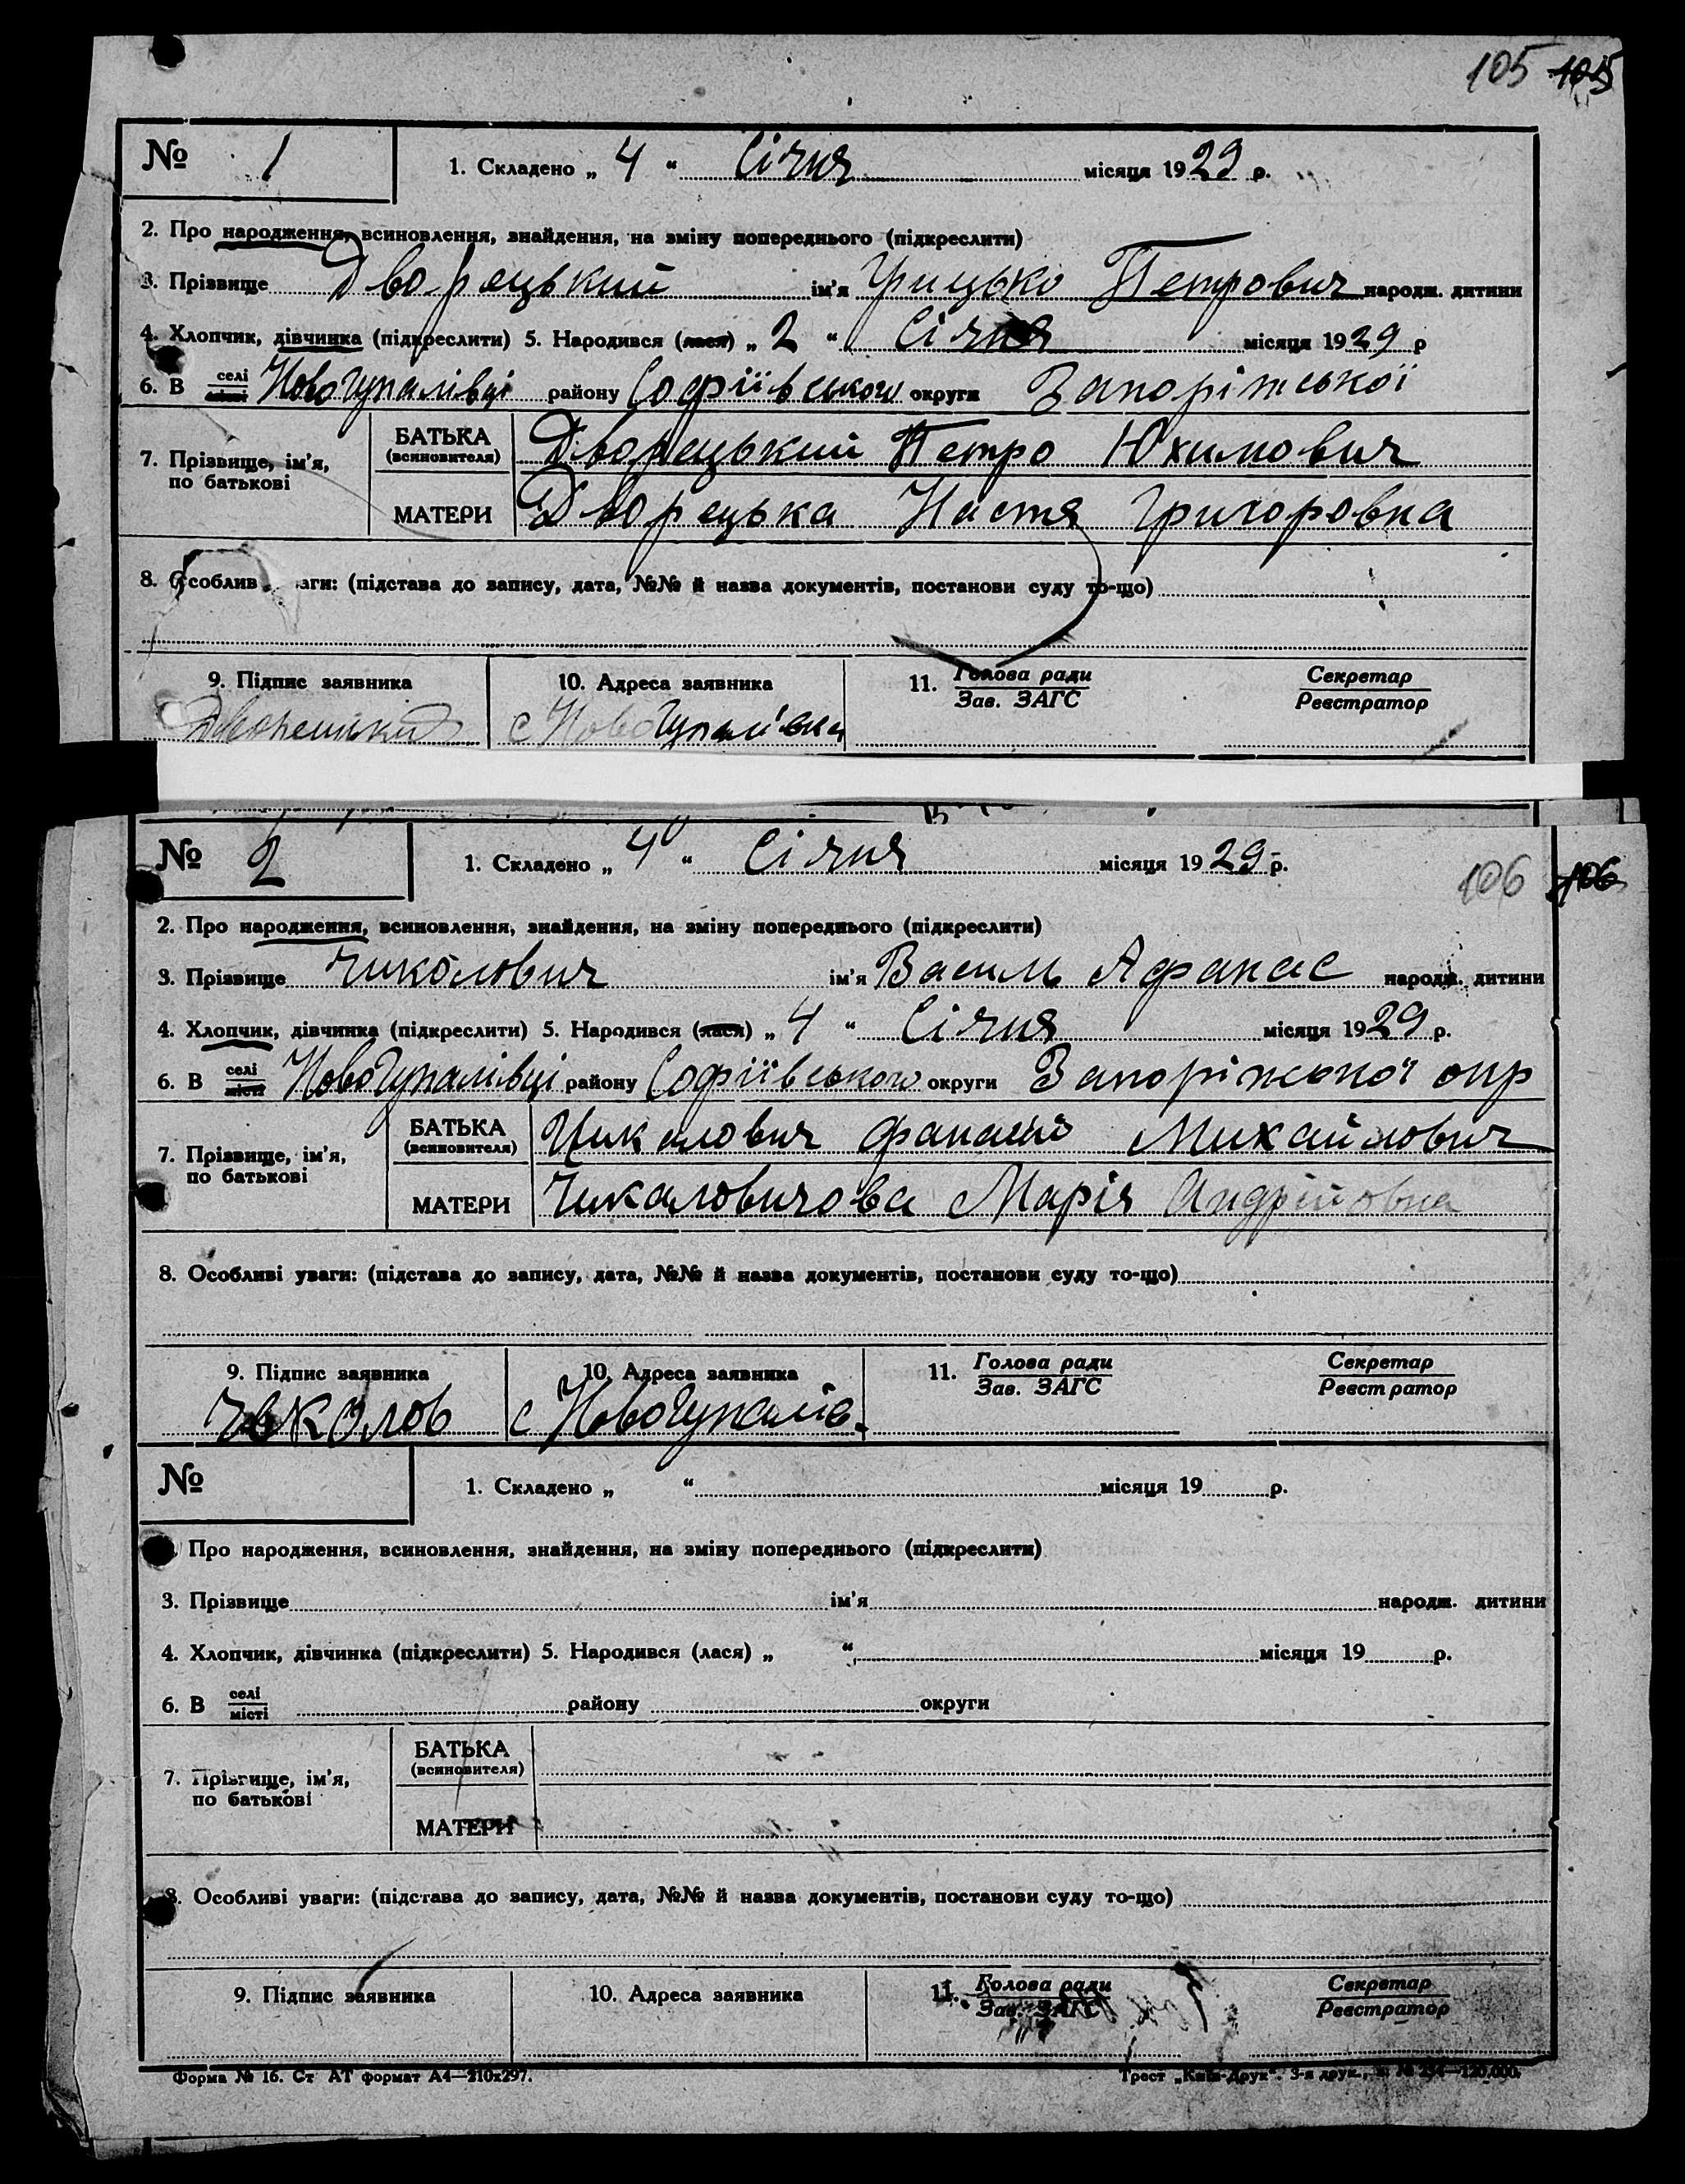 105 105
№ 1 1. Складено „ 4 “ Січня місяця 1929 р.
2. Про народження, всиновлення, знайдення, на зміну попереднього (підкреслити)
3. Прізвище Дворецький ім'я Грицько Петрович народж. дитини
4. Хлопчик, дівчинка (підкреслити) 5. Народився (лася) „ 2 “ Січня місяця 1929 р
6. В селі місті Новогупалівці району Софіївського округи Запоріжської
7. Прізвище, ім'я, по батькові
БАТЬКА (всиновителя) Дворецький Петро Юхимович
МАТЕРИ Дворецька Настя Григоровна
8. Особлив аги: (підстава до запису, дата, №№ й назва документів, постанови суду то-що)
9. Підпис заявника 10. Адреса заявника 11. Голова ради Секретар
Зав. ЗАГС Реєстратор
Дворецкий с Новогупалівка
№ 2 1. Складено „ 4 “ Січня місяця 1929 р.
106 106
2. Про народження, всиновлення, знайдення, на зміну попереднього (підкреслити)
3. Прізвище Чиколович ім'я Василь Афанас народж. дитини
4. Хлопчик, дівчинка (підкреслити) 5. Народився (лася) „ 4 “ Січня місяця 1929 р.
6. В селі місті Новогупалівці району Софіївського округи Запоріжської окр
7. Прізвище, ім'я, по батькові
БАТЬКА (всиновителя) Чикалович Фанасій Михайлович
МАТЕРИ Чикаловичова Марія Андрійовна
8. Особливі уваги: (підстава до запису, дата, №№ й назва документів, постанови суду то-що)
9. Підпис заявника 10. Адреса заявника 11. Голова ради Секретар
Зав. ЗАГС Реєстратор
Чиколов с Новогупалів.
№ 1. Складено „ “ місяця 19 р.
Про народження, всиновлення, знайдення, на зміну попереднього (підкреслити)
3. Прізвище ім'я народж. дитини
4. Хлопчик, дівчинка (підкреслити) 5. Народився (лася) „ “ місяця 19 р.
6. В селі місті району округи
7. Прізвище, ім'я, по батькові
БАТЬКА (всиновителя)
МАТЕРИ
8. Особливі уваги: (підстава до запису, дата, №№ й назва документів, постанови суду то-що)
9. Підпис заявника 10. Адреса заявника 11. Голова ради Секретар
Зав. ЗАГС Реєстратор
Форма № 16. Ст АТ формат А4—210x297. Трест „Київ-Друк“. 3-я друк., 120.000.